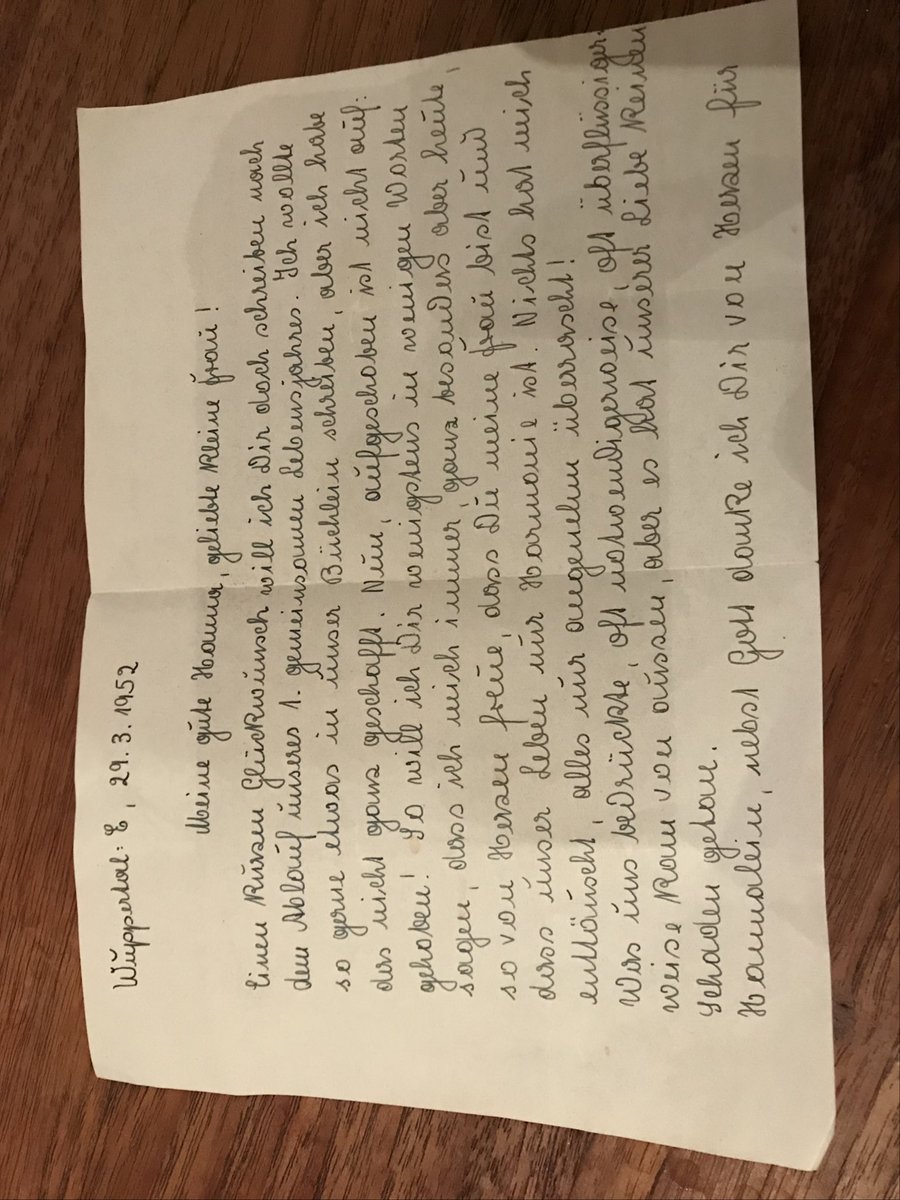 Wuppertal-E, 29.3.1952
Meine gute Hanna, geliebte kleine Frau!
Einen kurzen Glückwunsch will ich Dir doch schreiben nach
dem Ablauf unseres 1. gemeinsamen Lebensjahres. Ich wollte
so gerne etwas in unser Büchlein schreiben, aber ich habe
das nicht ganz geschafft. Nun, aufgeschoben ist nicht auf-
gehoben! So will ich Dir wenigstens in wenigen Worten
sagen, dass ich mich immer, ganz besonders aber heute,
so von Herzen freue, dass Du meine Frau bist und
dass unser Leben nur Harmonie ist. Nichts hat mich
enttäuscht, alles nur angenehm überrascht!
Was uns bedrückte, oft notwendigerweise, oft überflüssiger-
weise kam von aussen, aber es hat unserer Liebe keinen
Schaden getan.
Hannalein, nebst Gott danke ich Dir von Herzen für